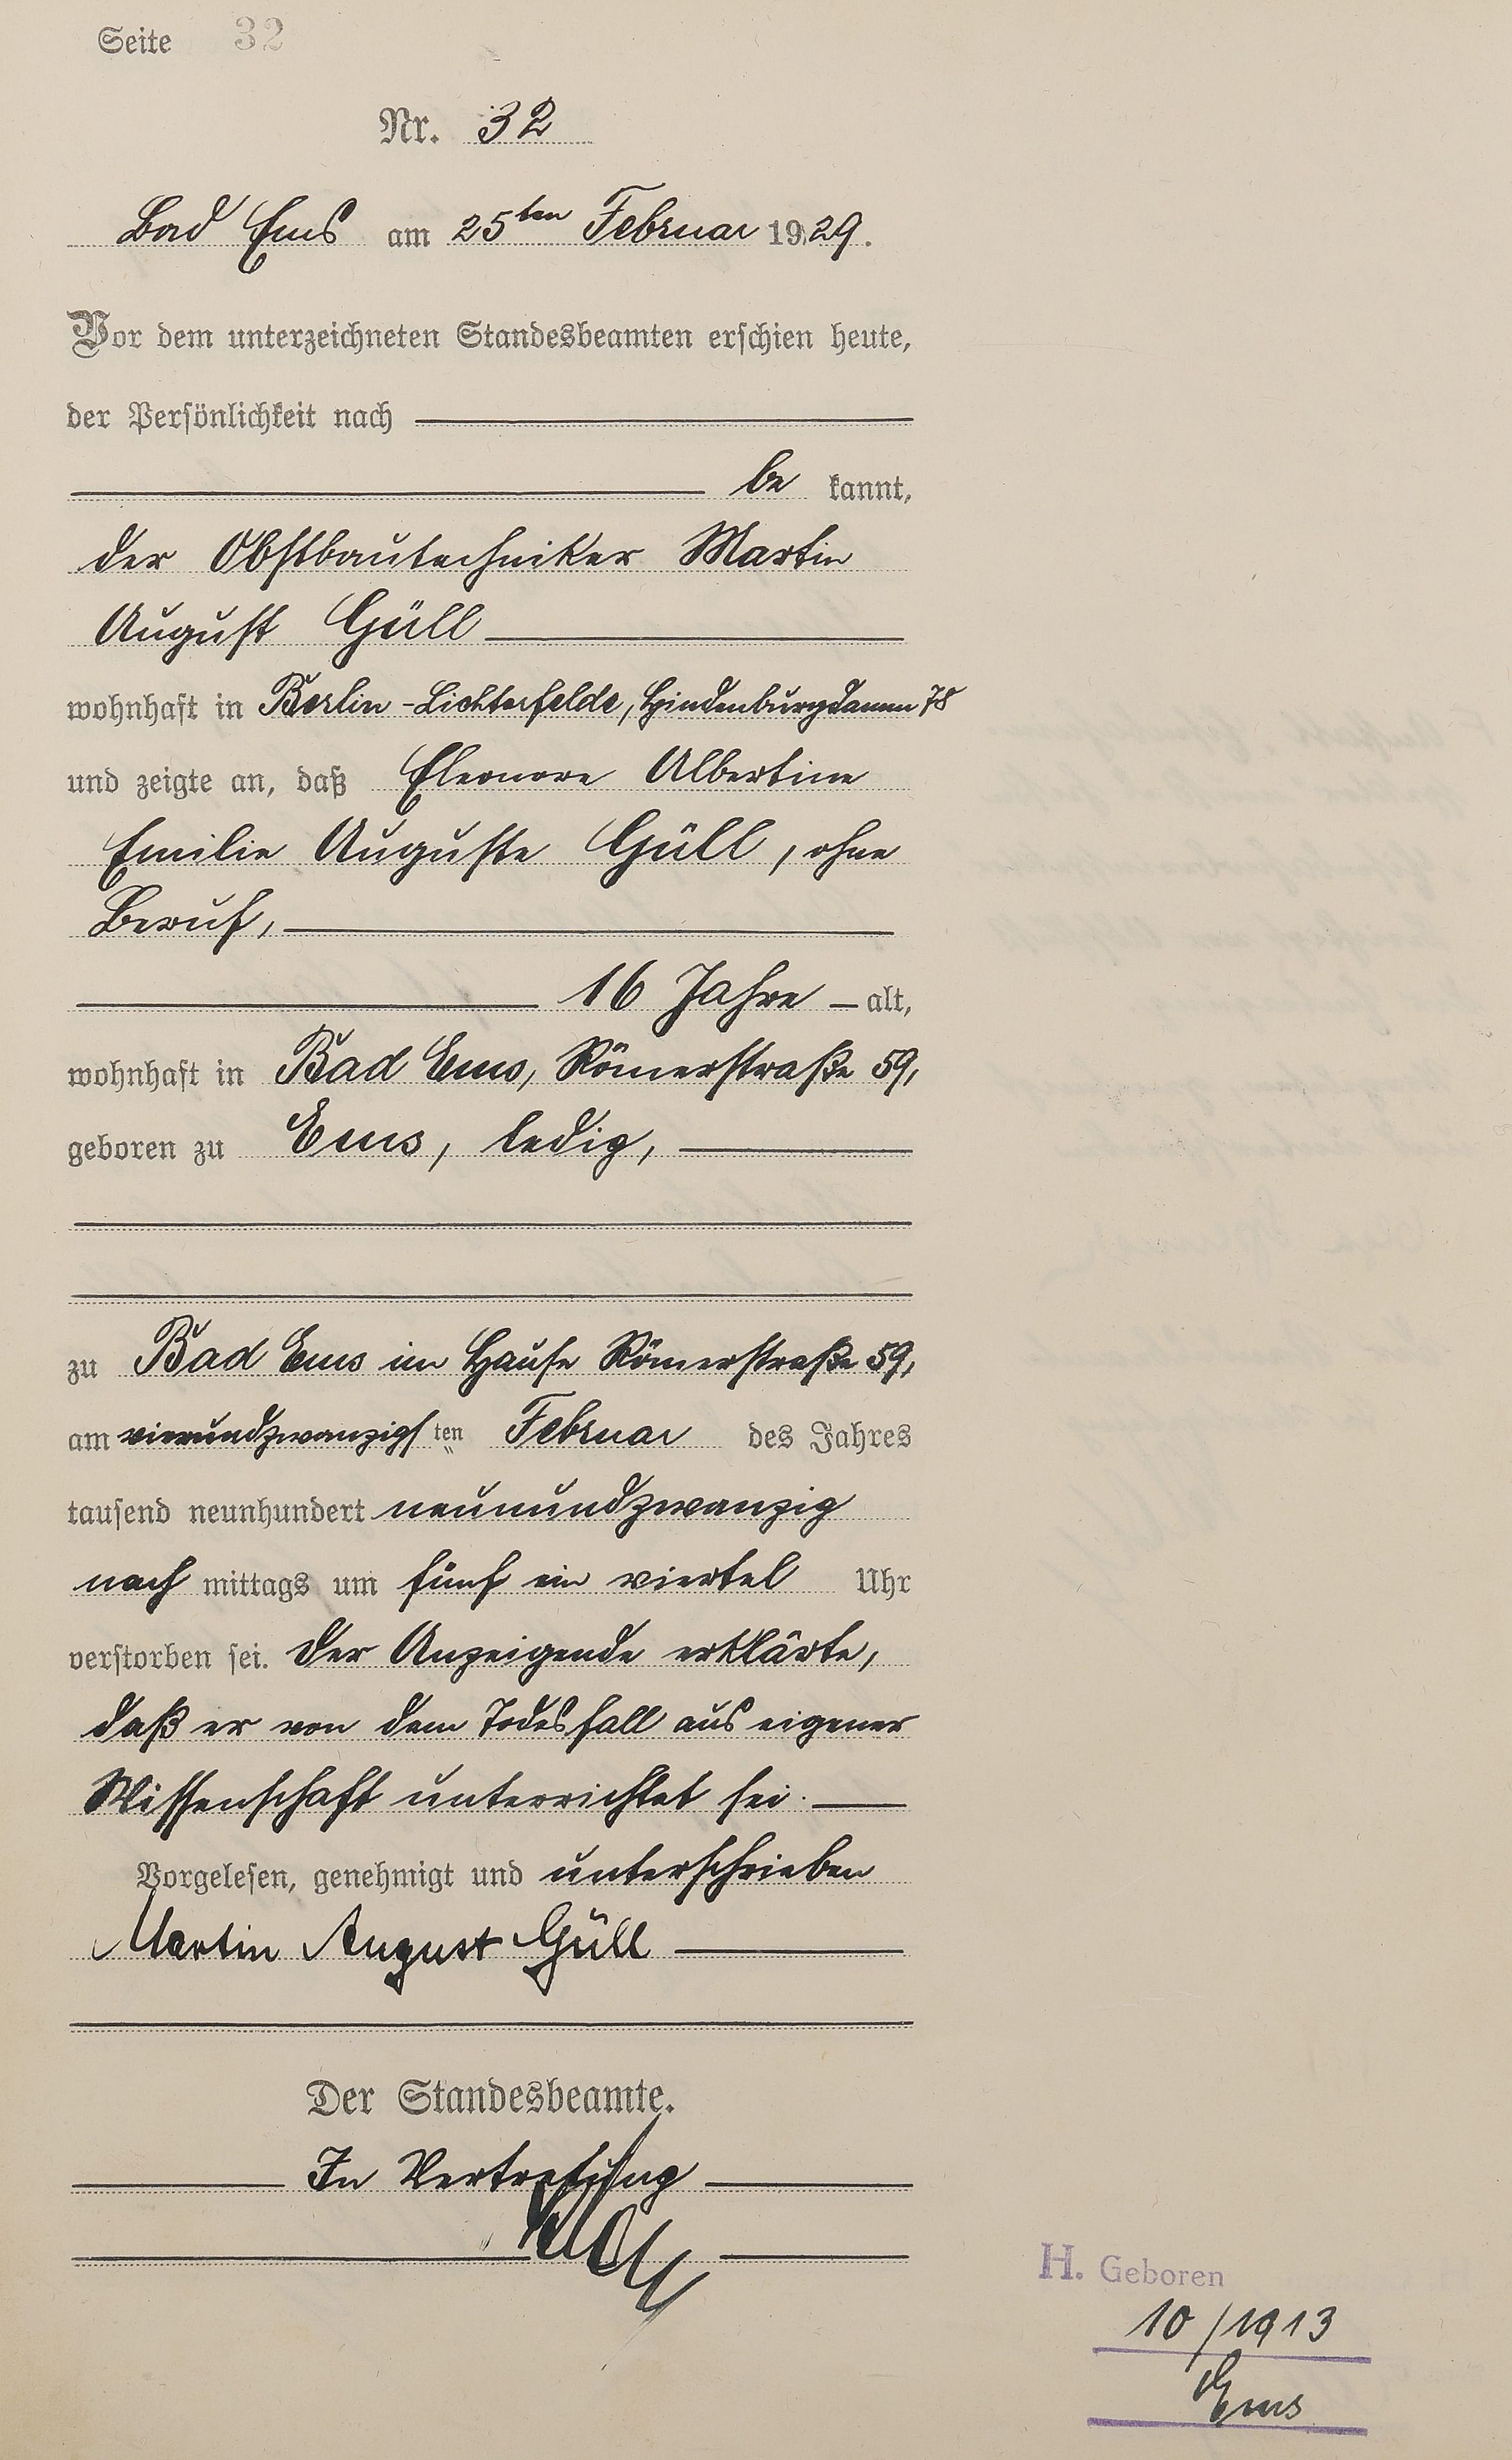 Seite 32
Nr. 32
Bad Ems am 25ten Februar 1929.
Vor dem unterzeichneten Standesbeamten erschien heute,
der Persönlichkeit nach
be kannt,
der Obstbautechniker Martin
August Güll
wohnhaft in Berlin-Lichterfelde, Hindenburgdamm 78
und zeigte an, daß Eleonore Albertine
Emilie Auguste Güll, ohne
Beruf,
16 Jahre alt,
wohnhaft in Bad Ems, Römerstraße 59,
geboren zu Ems, ledig,
zu Bad Ems im Hause Römerstraße 59,
am vierundzwanzigsten Februar des Jahres
tausend neunhundert neunundzwanzig
nach mittags um fünf ein viertel Uhr
verstorben sei. Der Anzeigende erklärte,
daß er von dem Todesfall aus eigener
Wissenschaft unterrichtet sei.
Vorgelesen, genehmigt und unterschrieben
Martin August Güll
Der Standesbeamte.
In Vertretung
H. Geboren
10/1913
Ems